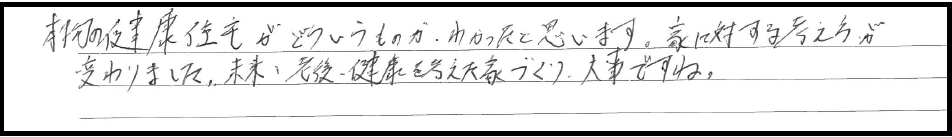 本物の健康住宅がどういうものか、わかったと思います。家に対する考え方が
変わりました。未来、老後、健康を考えた家づくり、大事ですね。